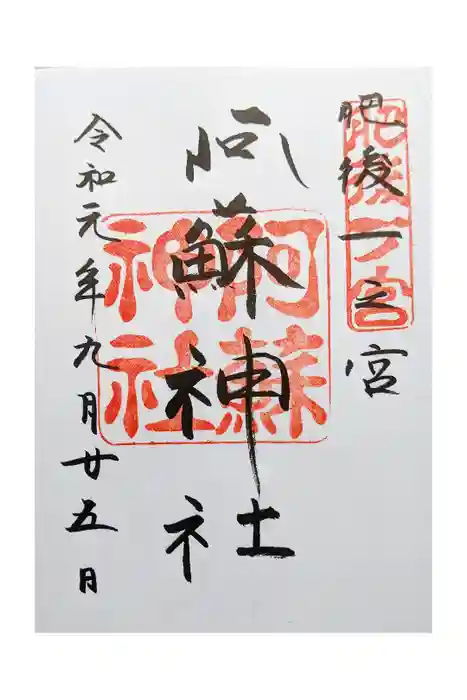 肥後一之宮
肥後一宮
阿蘇神社
阿蘇神社
令和元年九月廿五日